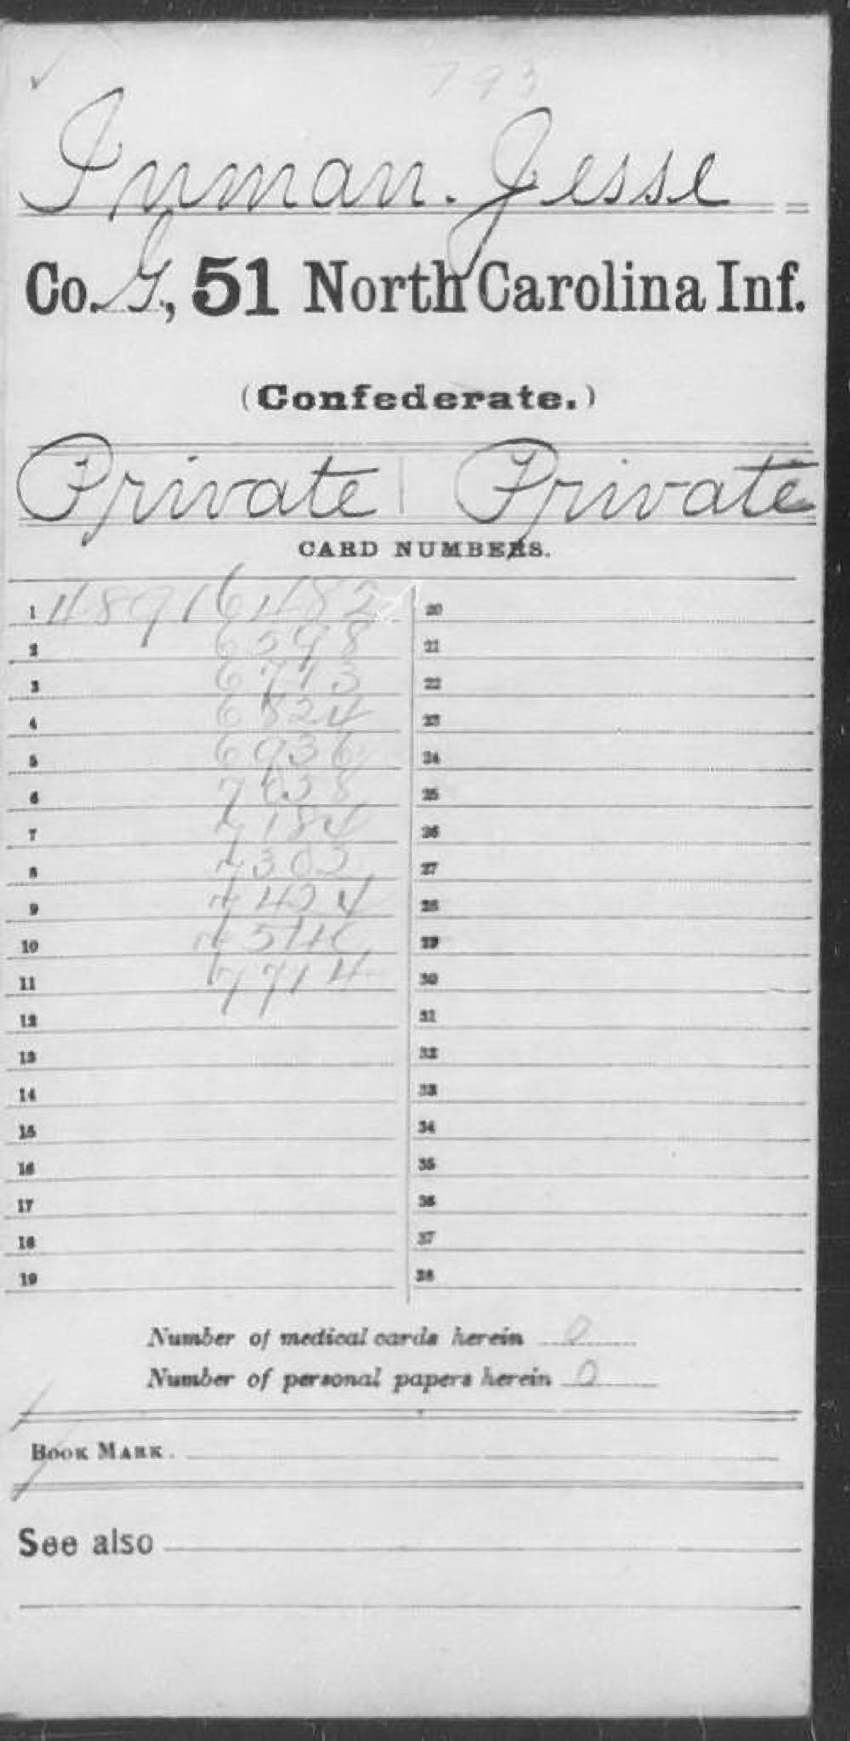 793
Inman. Jesse
Co. G, 51 North Carolina Inf.
(Confederate.)
Private | Private
CARD NUMBERS.
1 48916482 20
2 6598 21
3 6713 22
4 6824 23
5 6936 24
6 7058 25
7 7184 26
8 7303 27
9 7424 28
10 29
11 7714 30
12 31
13 32
14 33
15 34
16 35
17 36
18 37
19 38
Number of medical cards herein 0
Number of personal papers herein 0
BOOK MARK.
See also